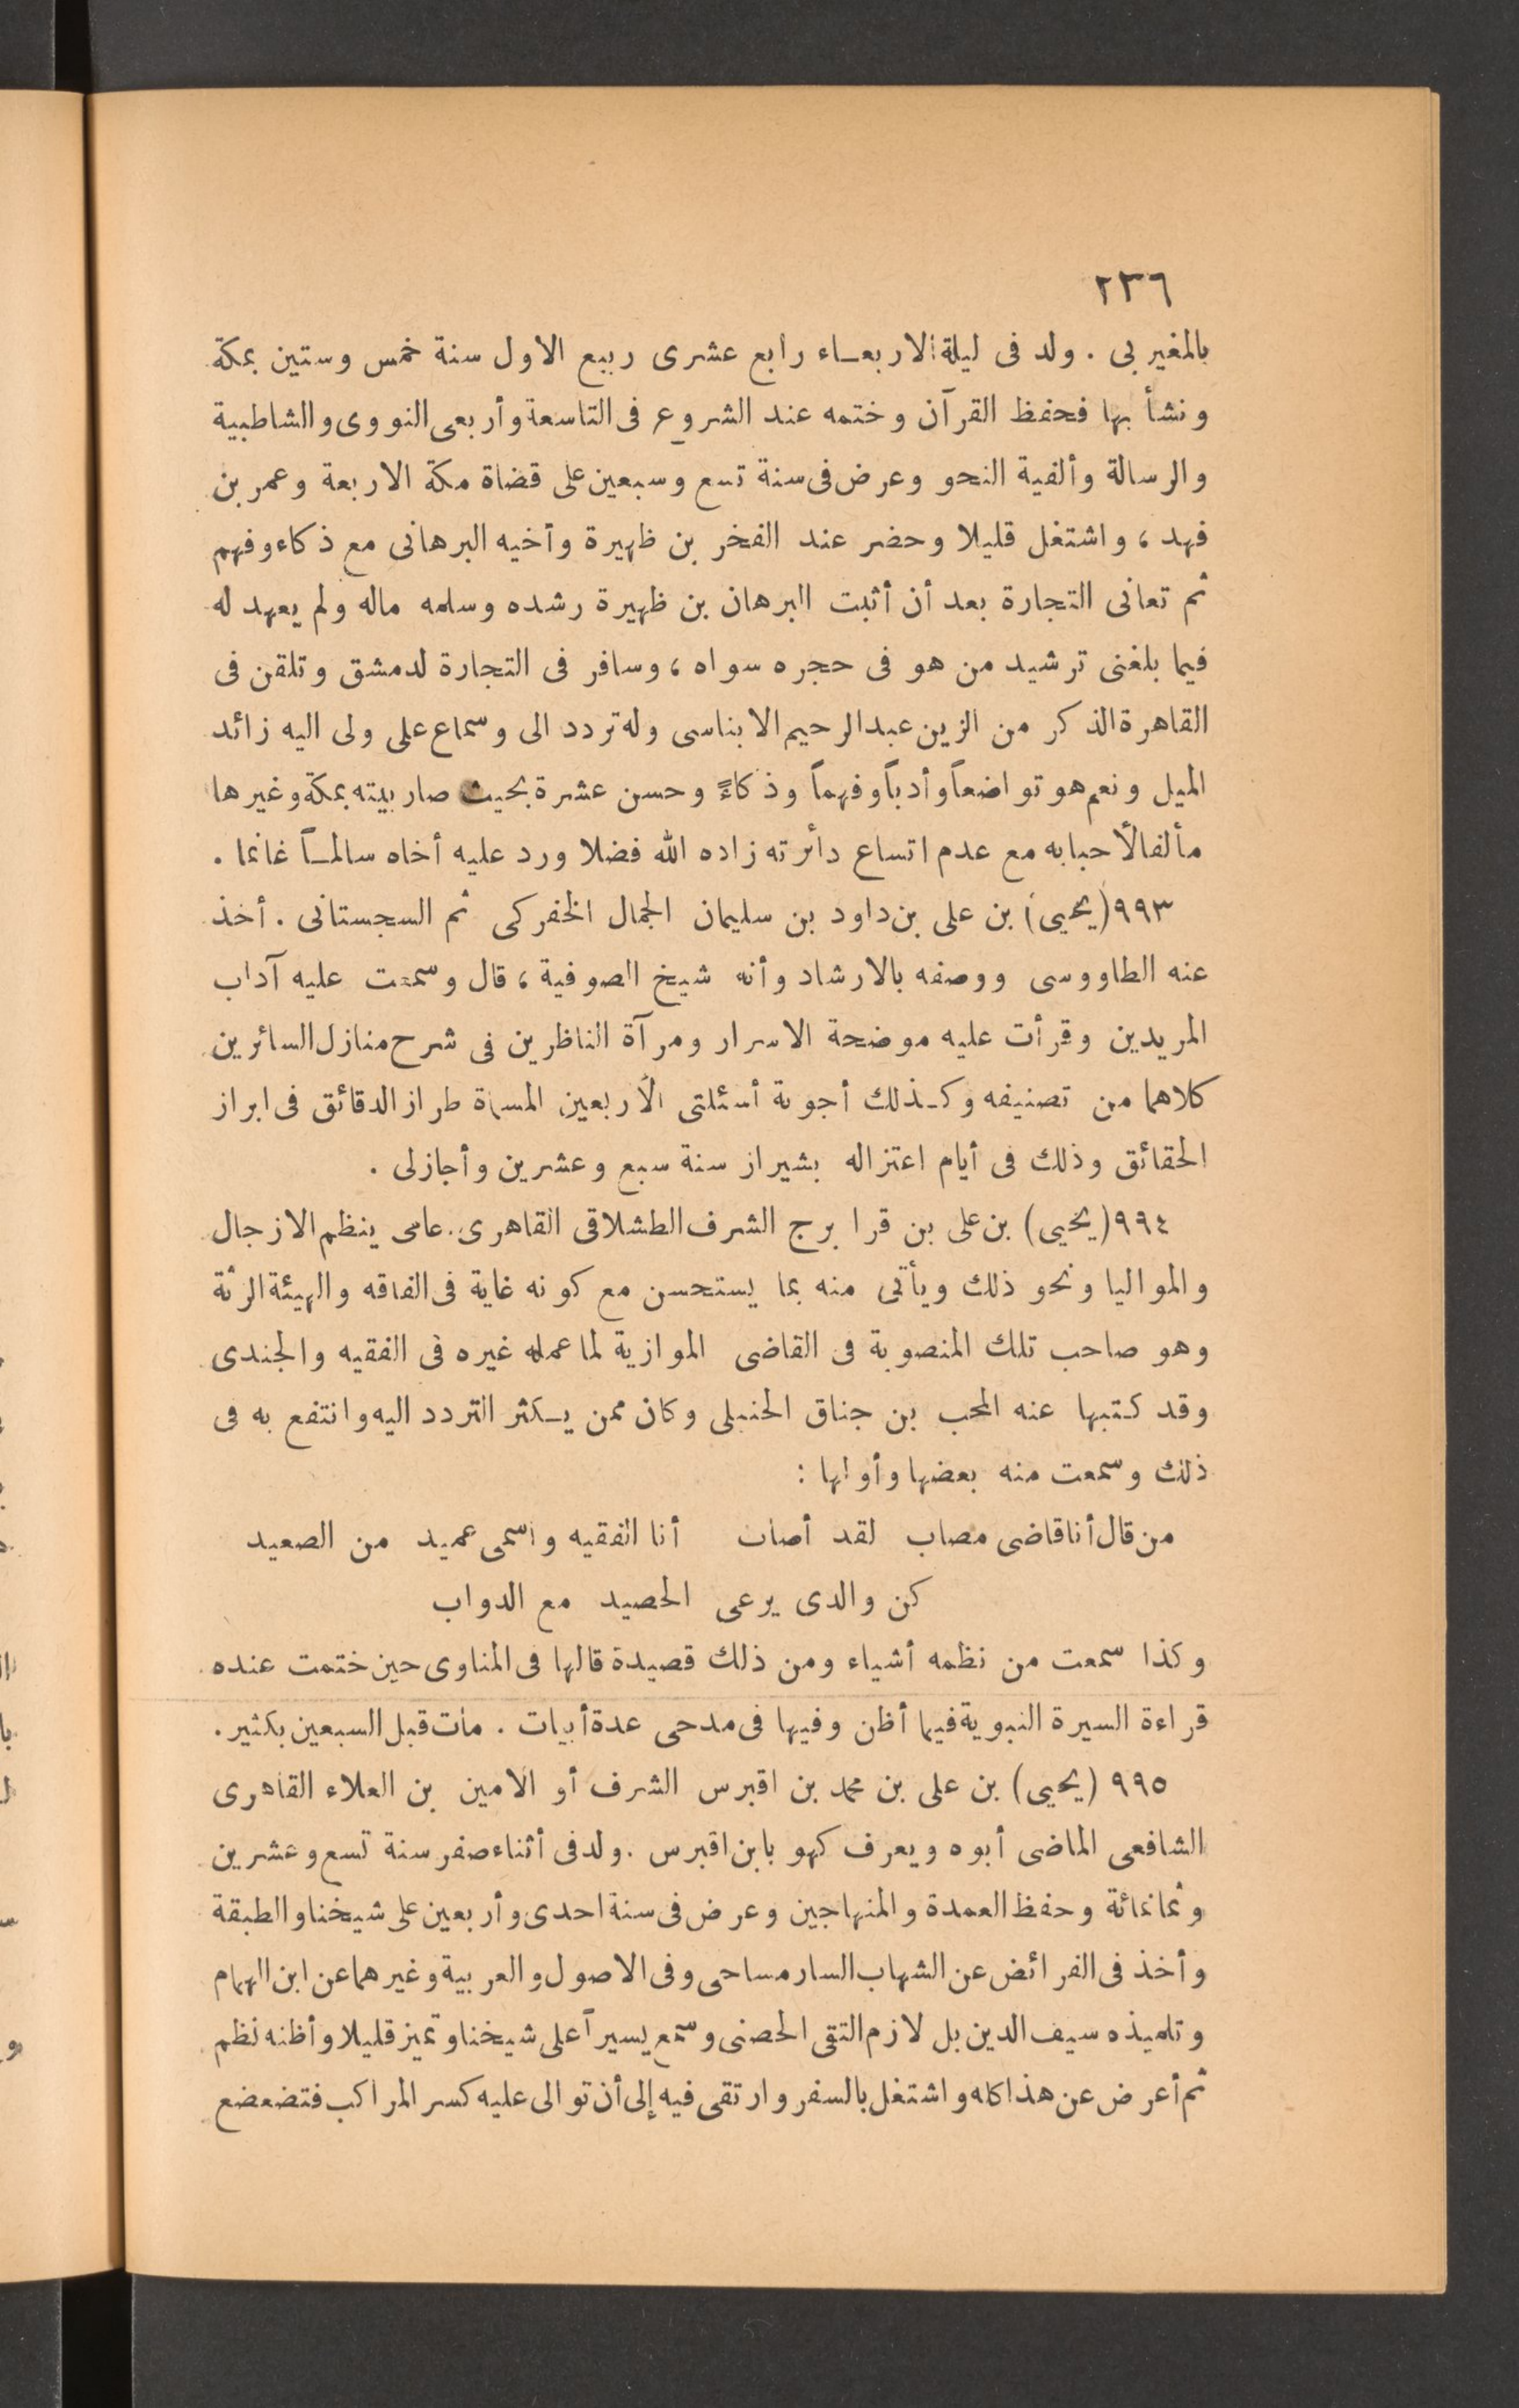 ٢٣٦
بالمغيربى . ولد فى ليلة الاربعاء رابع عشرى ربيع الاول سنة خمس وستين بمكة
ونشأ بها فحفظ القرآن وختمه عند الشروع فى التاسعة وأربعى النووى والشاطبية
والرسالة وألفية النحو وعرض فى سنة تسع وسبعين على قضاة مكة الاربعة وعمر بن
فهد ، واشتغل قليلا وحضر عند الفخر بن ظهيرة وأخيه البرهانى مع ذكاء وفهم
ثم تعانى التجارة بعد أن أثبت البرهان بن ظهيرة رشده وسلمه ماله ولم يعهد له
فيما بلغنى ترشيد من هو فى حجره سواه ، وسافر فى التجارة لدمشق وتلقن فى
القاهرة الذكر من الزين عبد الرحيم الابناسى وله تردد الى وسماع على ولى اليه زائد
الميل ونعم هو تواضعاً وأدباً وفهماً وذكاءً وحسن عشرة بحيث صار بيته بمكة وغيرها
مألفالأحبابه مع عدم اتساع دائرته زاده الله فضلا ورد عليه أخاه سالماً غانما .
٩٩٣ (يحيى) بن على بن داود بن سليمان الجمال الخفركى ثم السجستانى . أخذ
عنه الطاووسى ووصفه بالارشاد وأنه شيخ الصوفية ، قال وسمعت عليه آداب
المريدين وقرأت عليه موضحة الاسرار ومرآة الناظرين فى شرح منازل السائرين
كلاهما من تصنيفه وكذلك أجوبة أسئلتى الأربعين المسماة طراز الدقائق فى ابراز
الحقائق وذلك فى أيام اعتزاله بشيراز سنة سبع وعشرين وأجازلى .
٩٩٤ (يحيى) بن على بن قرا برج الشرف الطشلاقى القاهرى . عامى ينظم الازجال
والمواليا ونحو ذلك ويأتى منه بما يستحسن مع كونه غاية فى الفاقه والهيئة الرثة
وهو صاحب تلك المنصوبة فى القاضى الموازية لما عمله غيره فى الفقيه والجندى
وقد كتبها عنه المحب بن جناق الحنبلى وكان ممن يكثر التردد اليه وانتفع به فى
ذلك وسمعت منه بعضها وأولها :
من قال أنا قاضى مصاب لقد أصاب أنا الفقيه واسمى عميد من الصعيد
كن والدى يرعى الحصيد مع الدواب
وكذا سمعت من نظمه أشياء ومن ذلك قصيدة قالها فى المناوى حين ختمت عنده
قراءة السيرة النبوية فيما أظن وفيها فى مدحى عدة أبيات . مات قبل السبعين بكثير .
٩٩٥ (يحيى) بن على بن محمد بن اقبرس الشرف أو الامين بن العلاء القاهرى
الشافعى الماضى أبوه ويعرف كهو بابن اقبرس . ولد فى أثناء صفر سنة تسع وعشرين
وثمانمائة وحفظ العمدة والمنهاجين وعرض فى سنة احدى وأربعين على شيخنا والطبقة
وأخذ فى الفرائض عن الشهاب السارمساحى وفى الاصول والعربية وغيرهما عن ابن الهمام
وتلميذه سيف الدين بل لازم التقى الحصنى وسمع يسيراً على شيخنا وتميز قليلا وأظنه نظم
ثم أعرض عن هذا كله واشتغل بالسفر وارتقى فيه إلى أن توالى عليه كسر المراكب فتضعضع